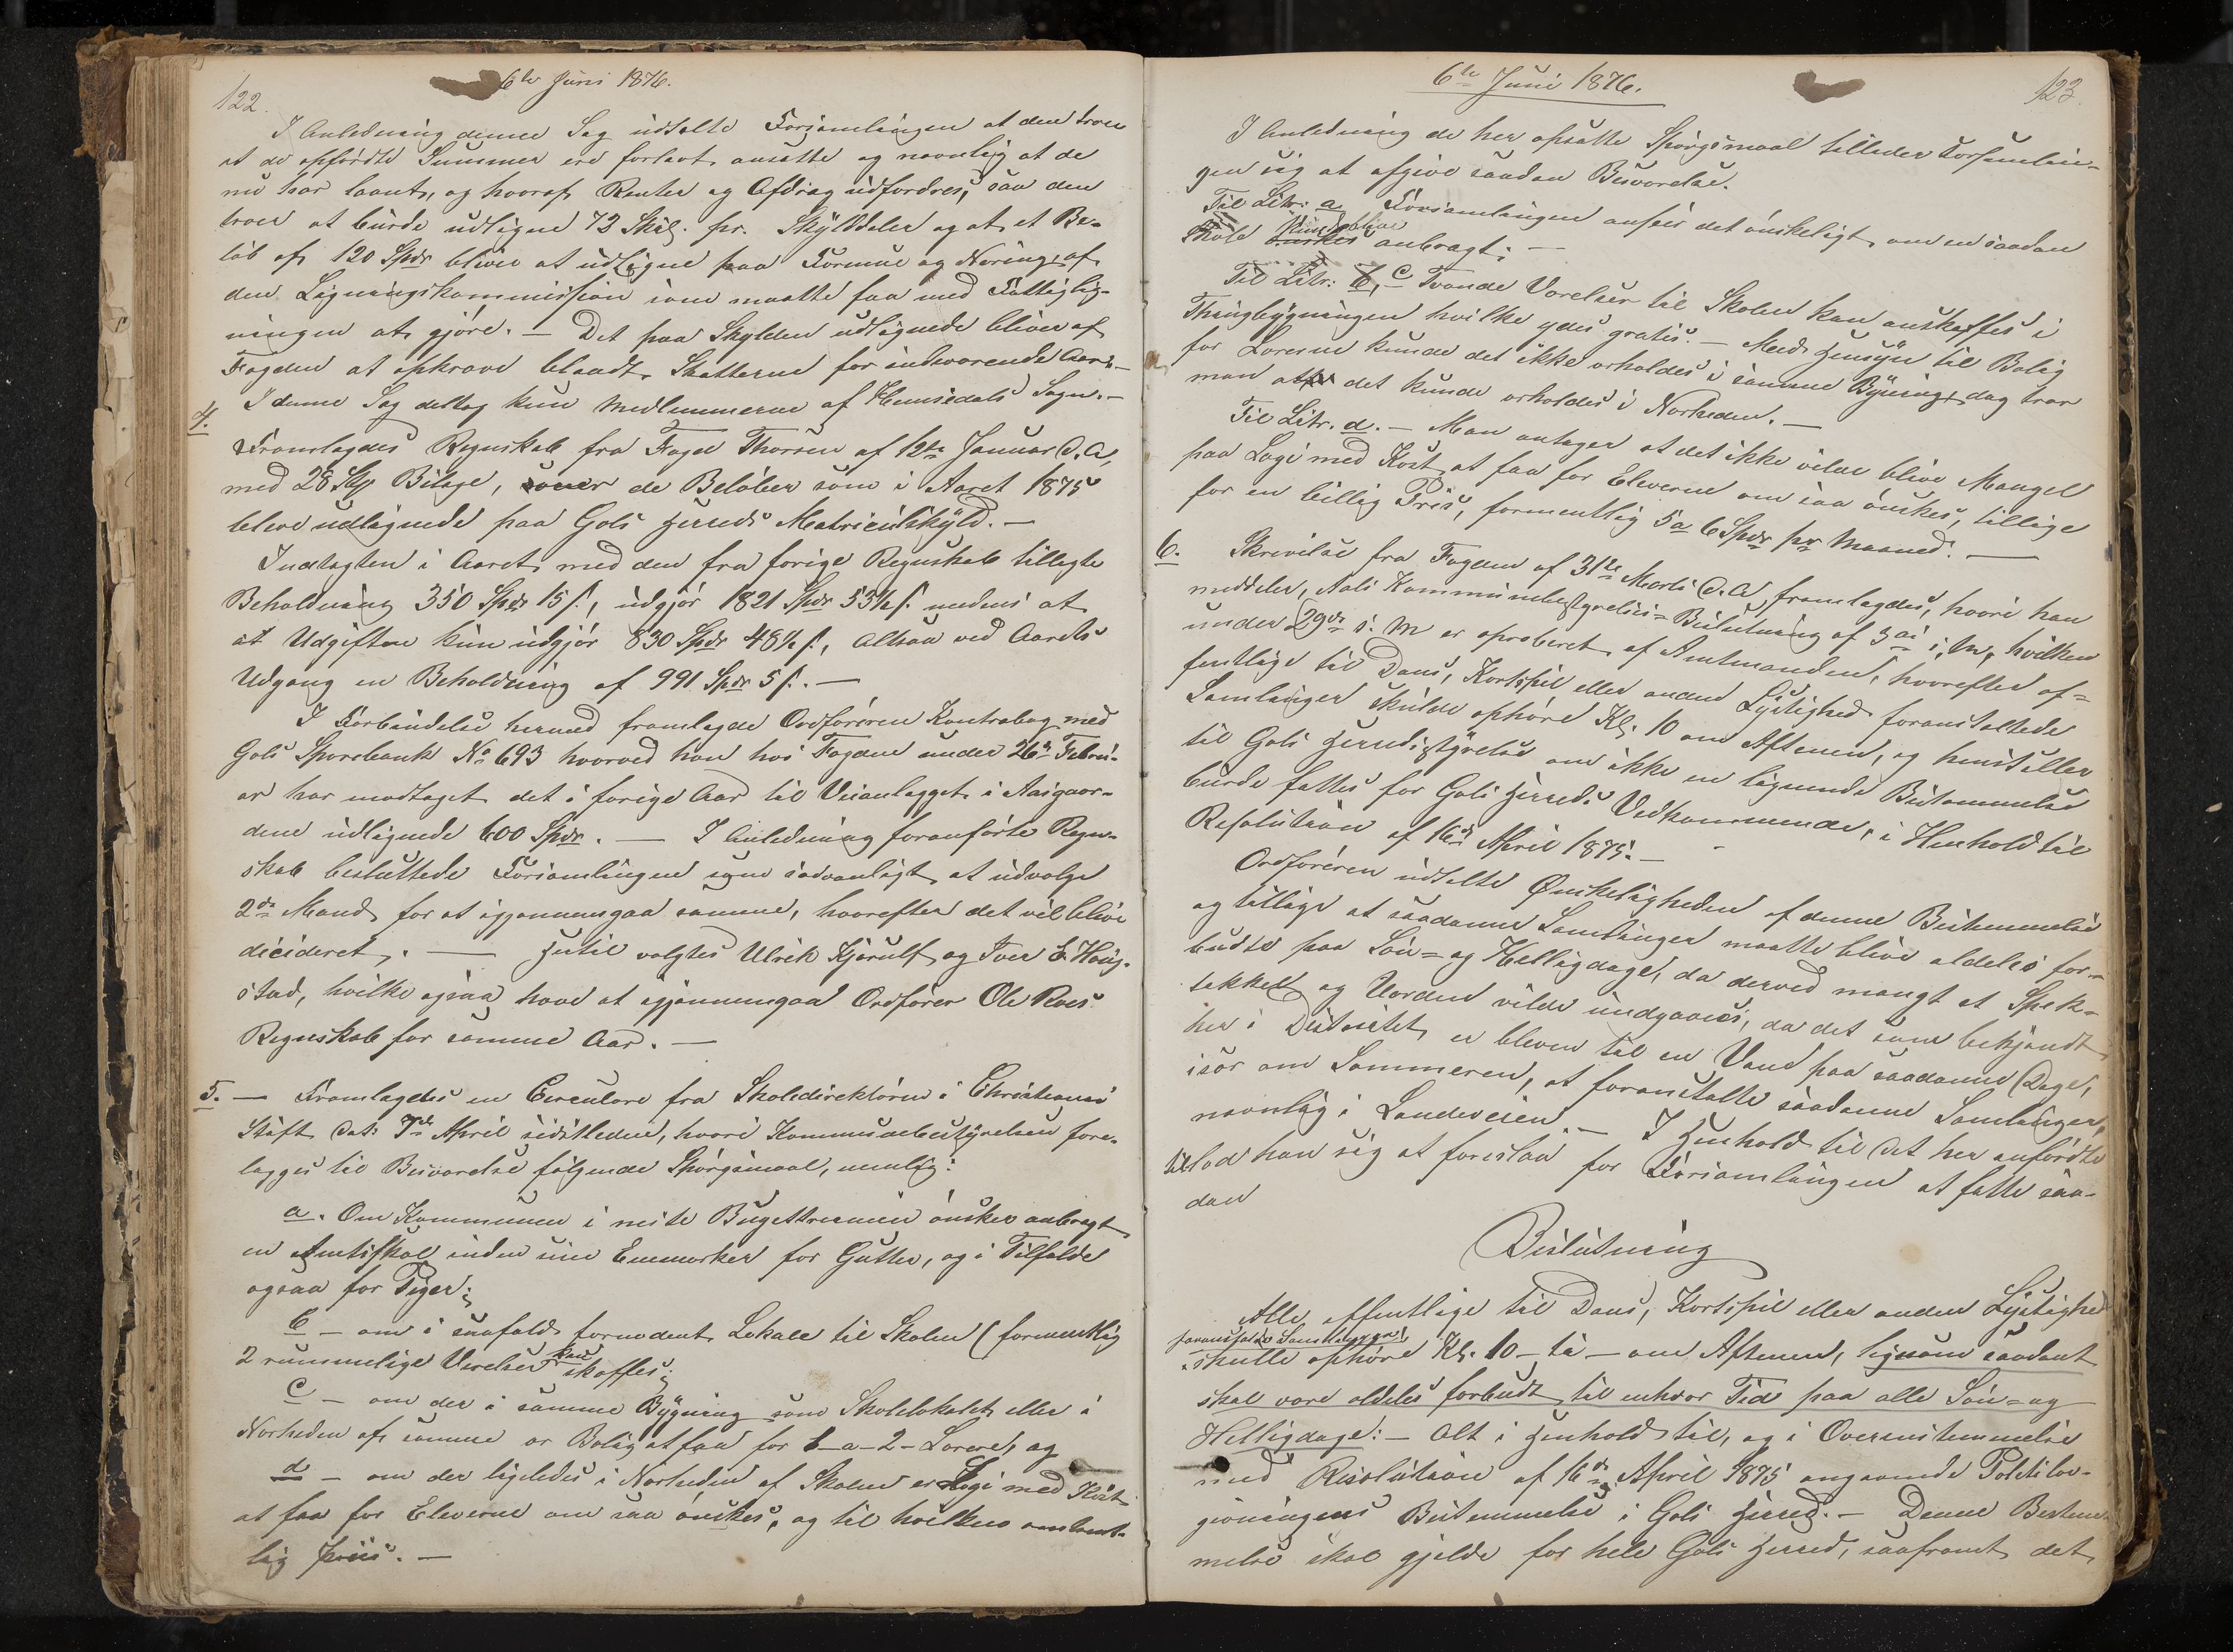 122.
6te Juni 1876.
I Anledning denne Sag udtalte Forsamlingen at den troer
at de opførdte Summer ere forlavt ansatte og navnlig at de
nu har laant, og hvoraf Renter og Afdrag udfordres, saa den
troer at burde udligne 72 Skil. pr. Skylddaler og at et Be-
løb af 120 Spdr bliver at udligne paa Formue og Næring, af
den Ligningskommission som maatte faa med Fattiglig-
ningen at gjøre. — Det paa Skylden udlignede bliver af
Fogden at opkræve blandt Skatterne for indeværende Aar. —
I denne Sag deltog kun Medlemmerne af Hemsedals Sogn. —
4.
Fremlagdes Regnskab fra Foged Thorsen af 12te Januar d.A,
med 28 Stkr Bilage, over de Beløber som i Aaret 1875
bleve udlignede paa Gols Herreds Matriculskyld. —
Indtægten i Aaret med den fra forige Regnskab tillagte
Beholdning 350 Spdr 15 s., udgjør 1821 Spdr 53½ s. medens at
at Udgiften kun udgjør 830 Spdr 48½ s., altsaa ved Aarets
Udgang en Beholdning af 991 Spdr 5 s. —
I Forbindelse hermed fremlagde Ordføreren Kontrabog med
Gols Sparebank No 693 hvorved han hos Fogden under 26de Febru-
ar har modtaget det i forige Aar til Veianlægget i Aasgaar-
dene udlignede 600 Spdr. — I Anledning foranførte Regn-
skab besluttede Forsamlingen som sædvanligt at udvælge
2de Mænd for at igjennemgaa samme, hvorefter det vil blive
dicideret. — Hertil valgtes Ulrik Kjerulf og Iver E. Haug-
stad, hvilke ogsaa have at igjennemgaa Ordfører Ole Roes
Regnskab for samme Aar. —
5. — Fremlagdes en Circulære fra Skoledirektøren i Christiania
Stift dat: 7de April sidstleden, hvori Kommunebestyrelsen fore-
lægges til Besvarelse følgende Spørgsmaal, nemlig:
a. Om Kommunen i neste Bugettermin ønsker anbragt
en Amtsskole inden sine Enemærker for Gutter, og i Tilfælde
ogsaa for Piger;
b — om i saafald fornødent Lokale til Skolen (formentlig
2 rummelige Værelser kan skaffes;
c — om der i samme Bygning som Skolelokalet eller i
Nærheden af samme er Bolig at faa for 1 - a - 2 - Lærere, og
d — om der ligeledes i Nærheden af Skolen er Logi med Kost
at faa for Eleverne om saa ønskes, og til hvilken omtrent-
lig priis. —
6te Juni 1876.
123.
I Anledning de her opsatte Spørgsmaal tillader Forsamlin-
gen sig at afgive saadan Besvarelse.
Til Litr: a Forsamlingen anseer det ønskeligt, om en saadan
Skole ønskes kunde blive anbragt; —
Til Litr: b, c Tvende Værelser til Skolen kan anskaffes i
Thingbygningen hvilke ydes gratis. — Med Hensyn til Bolig
for Læreren kunde det ikke erholdes i samme Bygning, dog tror
man at det kunde erholdes i Nærheden. —
Til Litr. d. — Man antager at det ikke vilde blive Mangel
paa Logi med Kost at faa for Eleverne om saa ønskes, tillige
for en billig Pris, formentlig 5 a 6 Spdr pr Maaned. —
6. Skrivelse fra Fogden af 31te Marts d.A, fremlagdes, hvori han
meddeler, Aals Kommunebestyrelses-Beslutning af 3die s. M, hvilken
under 29de s. M er aproberet af Amtmanden, hvorefter of-
fentlige til Dans, Kortspil eller anden Lystighed foranstaltede
Samlinger skulde ophøre Kl. 10 om Aftenen, og henstiller
til Gols Herredsstyrelse om ikke en lignende Bestemmelse
burde fattes for Gols Herreds Vedkommende, i Henhold til
Resolution af 16de April 1875. —
Ordføreren udtalte Ønskeligheden af denne Bestemmelse
og tillige at saadanne Samlinger maatte blive aldeles for-
budte paa Søn- og Helligdage, da derved mangt et Spek-
takkel og Uorden vilde undgaaes, da det som bekjendt
her i Distriktet er bleven til en Vane paa saadanne Dage,
især om Sommeren, at foranstalte saadanne Samlinger,
navnlig i Landeveien. — I Henhold til det her anførdte
tillod han sig at foreslaa for Forsamlingen at fatte saa-
dan
Beslutning
Alle offentlige til Dans, Kortspil eller anden Lystighed
foranstaltede Samlinger,
skulle ophøre Kl. 10 - ti - om Aftenen, ligesom saadant
skal være aldeles forbudt til enhver Tid paa alle Søn- og
Helligdage: — Alt i Henhold til, og i Overensstemmelse
med Resolution af 16de April 1875 angaaende Politilov-
givningens Bestemmelse i Gols Herred. — Denne Bestem-
melse skal gjelde for hele Gols Herred, saafremt det